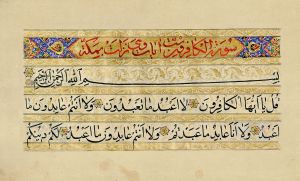 سورة الكافرون ست آيات وهي بمكة
بسم الله الرحمن الرحيم
قل يا أيها الكافرون لا أعبد ما تعبدون ولا أنتم عابدون ما
أعبد ولا أنا عابد ما عبدتم ولا أنتم عابدون ما أعبد لكم دينكم